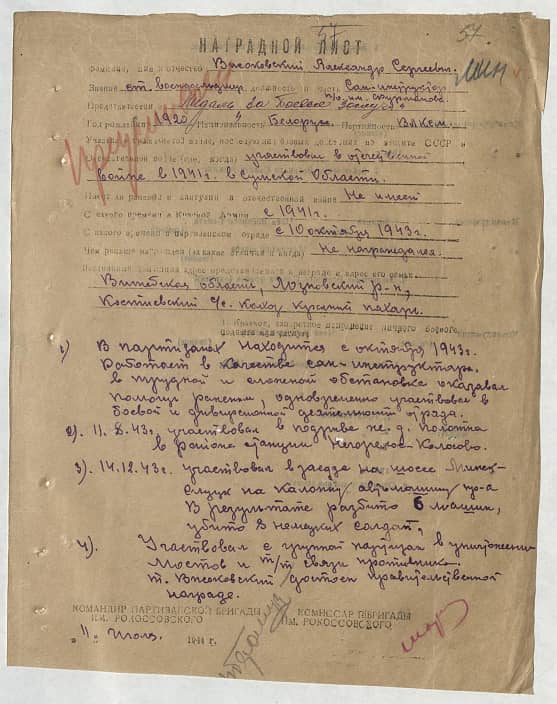 57
57.
НАГРАДНОЙ ЛИСТ
Фамилия, имя и отчество Высоковский Александр Сергеевич.
Звание ст. военфельдшер должность и часть Сан-инструктор
п/о им.
Представляется Медаль за Боевые Заслуги
Год рождения 1920 Национальность Белорус. Партийность ВЛКСМ.
СССР и
Отечественной войне (где, когда) участвовал в отечественной
войне в 1941г. в Сумской Области.
Имеет ли ранения и контузии в отечественной войне Не имеет
С какого времени в Красной Армии с 1941г.
С какого времени в партизанском отряде с 10 октября 1943г.
Чем раньше награжден (за какие отличия и когда) Не награждался.
Постоянный домашний адрес представляемого к награде и адрес его семьи
Витебская область, Лиозновский р-н,
Костеевский с/с. колхоз Красный пахарь.
1. Краткое, конкретное изложение личного боевого
1) В партизанах находится с октября 1943г.
Работает в качестве сан-инструктора.
в трудной и сложной обстановке оказывал
помощь раненым, одновременно участвовал в
боевой и диверсионной деятельности отряда.
2). 11.8.43г. участвовал в подрыве ж.д. полотна
в районе станции Негорелое-Колосово.
3). 14.12.43г. участвовал в засаде на шоссе Минск-
Слуцк на колонну автомашин пр-а
В результате разбито 6 машин,
убито 8 немецких солдат,
4). Участвовал с группой партизан в уничтожении
мостов и т/т связи противника.
т. Высоковский достоин правительственной
награде.
КОМАНДИР ПАРТИЗАНСКОЙ БРИГАДЫ
ИМ. РОКОССОВСКОГО
КОМИССАР П/БРИГАДЫ
ИМ. РОКОССОВСКОГО
"11" Июля 1944 г.